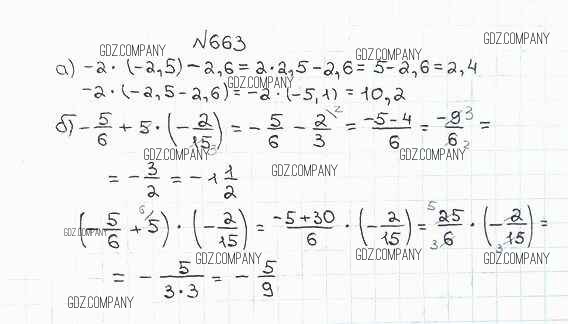 №663
GDZ.COMPANY
GDZ.COMPANY
GDZ.COMPANY
а) -2·(-2,5)-2,6=2·2,5-2,6=5-2,6=2,4
GDZ.COMPANY
-2·(-2,5-2,6)=-2·(-5,1)=10,2
б) -5/6+5·(-2/15)=-5/6-2/3=(-5-4)/6=-9/6=
3 2 3 2
GDZ.COMPANY
GDZ.COMPANY
GDZ.COMPANY
=-3/2=-1 1/2
(-5/6+5)·(-2/15)=(-5+30)/6·(-2/15)=25/6·(-2/15)=
6 5 3 3
GDZ.COMPANY
GDZ.COMPANY
GDZ.COMPANY
GDZ.COMPANY
=-5/(3·3)=-5/9
GDZ.COMPANY